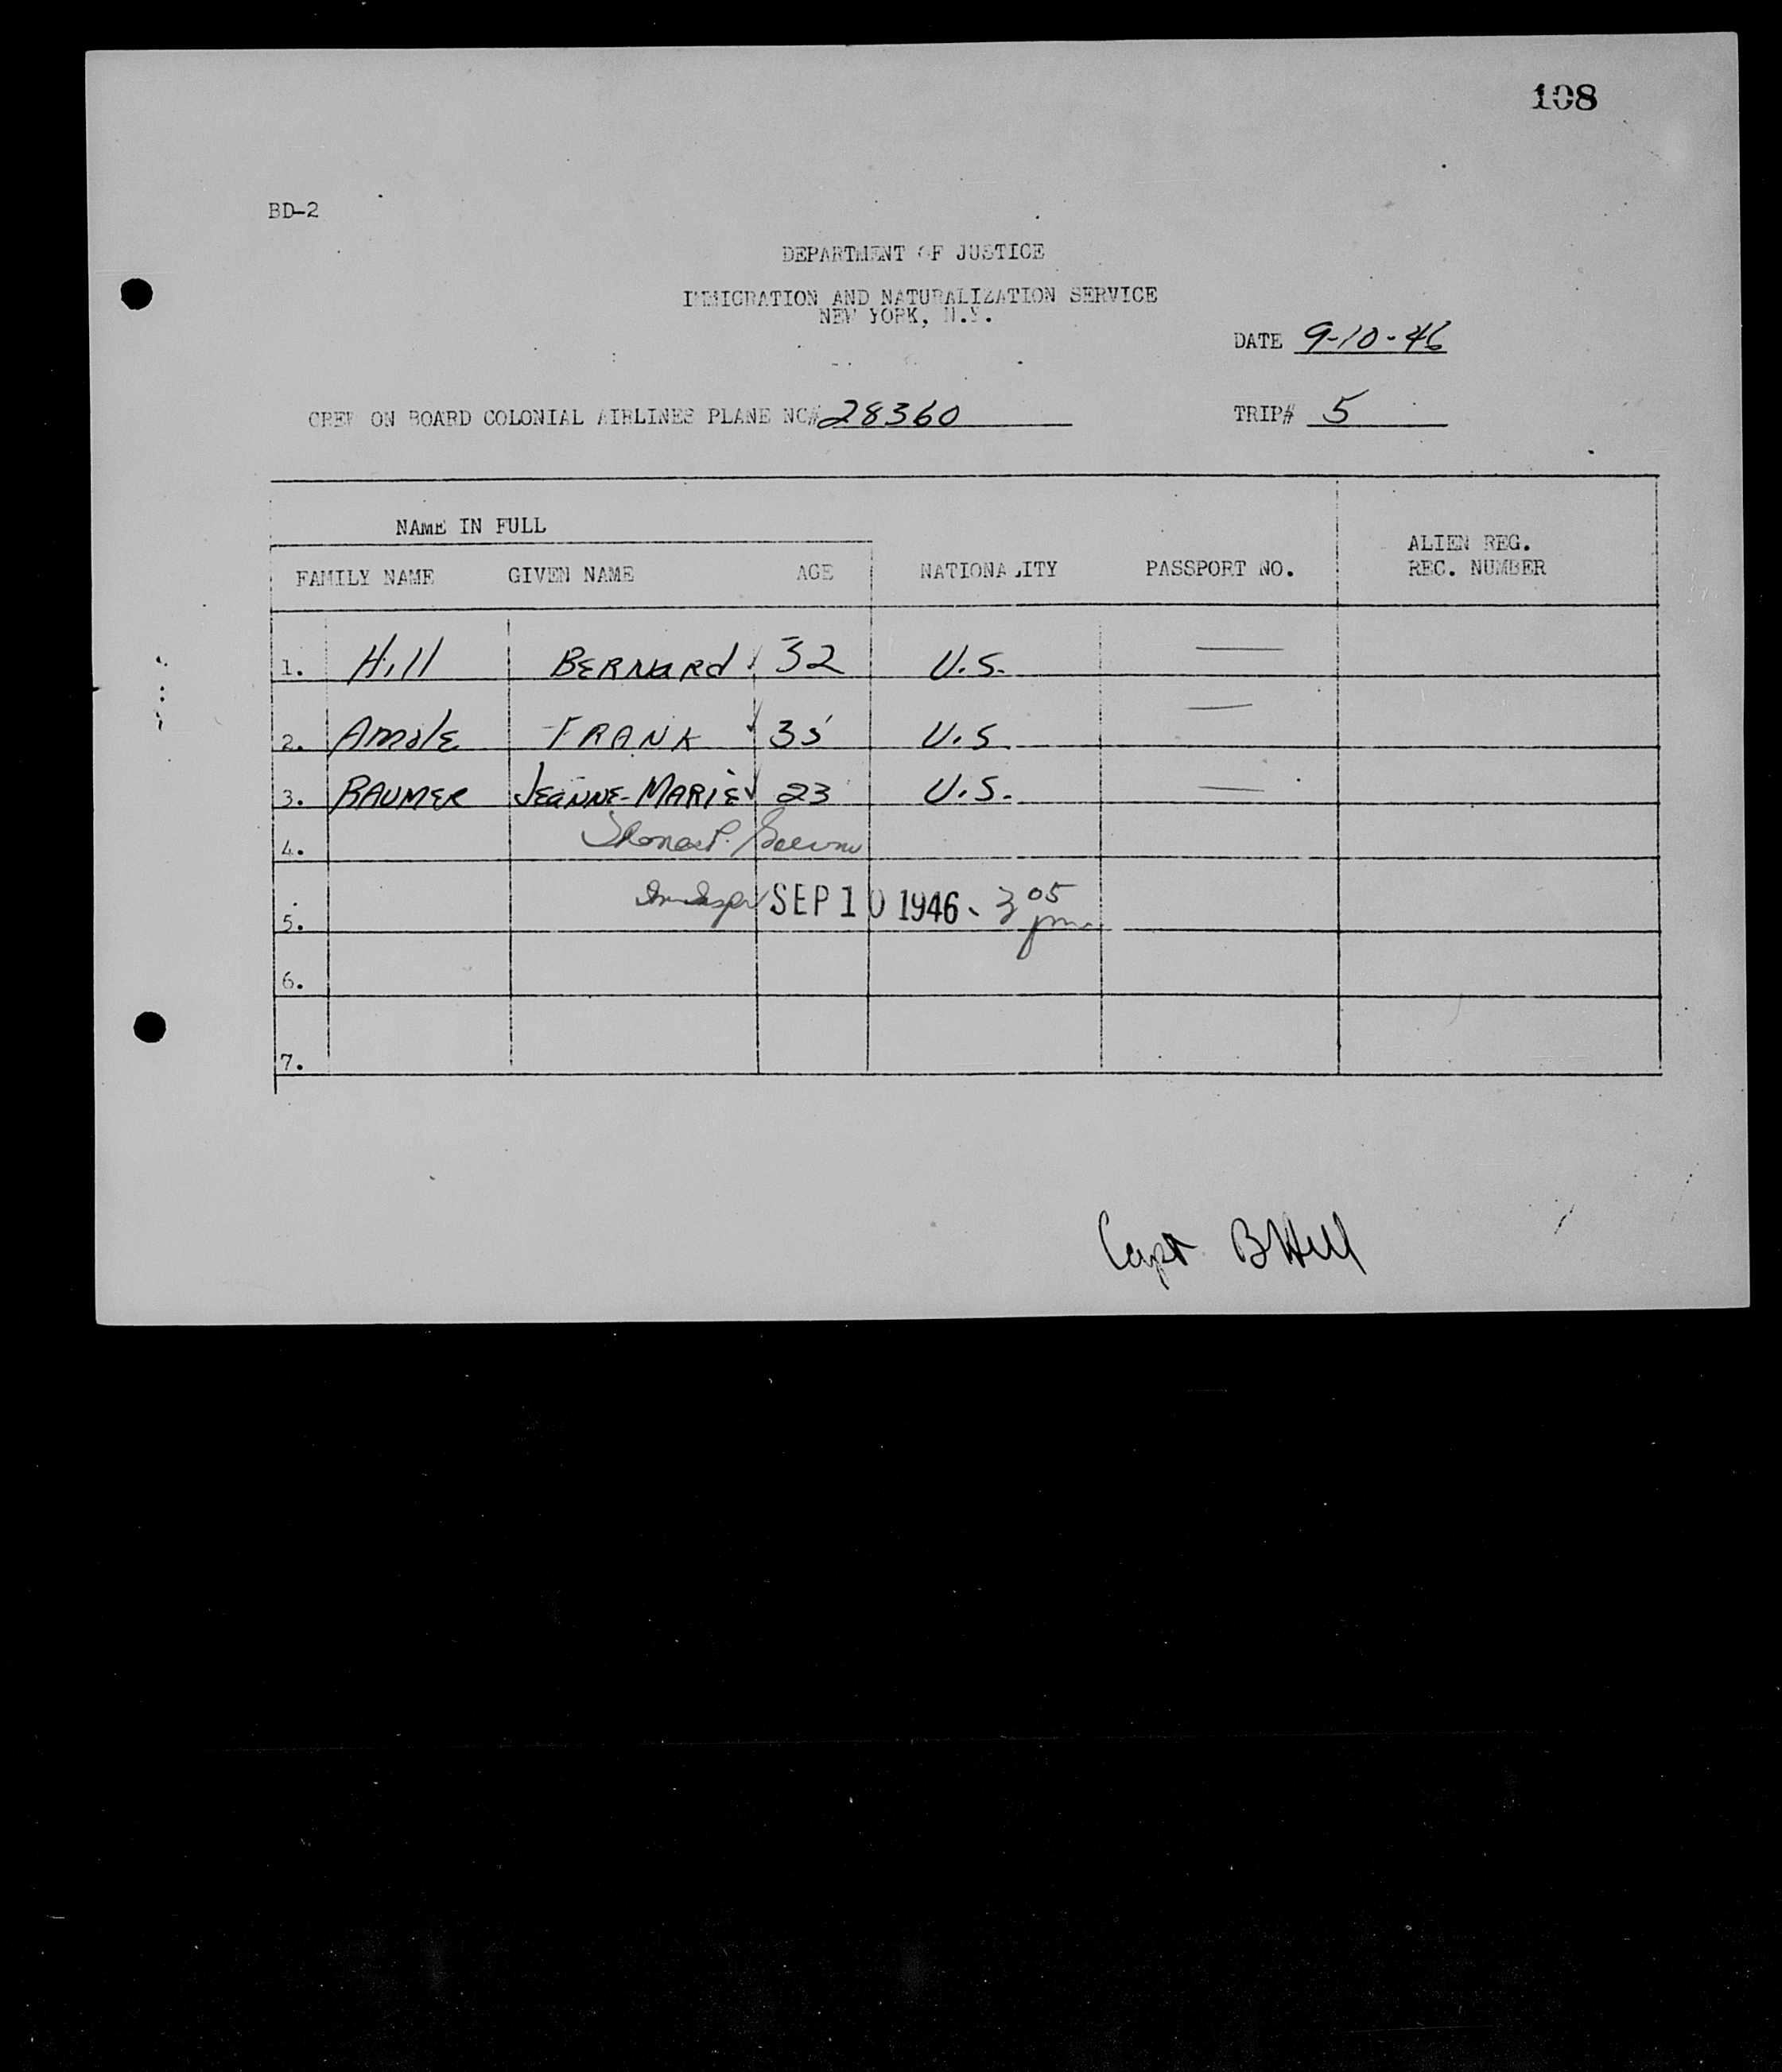 108
BD-2
DEPARTMENT OF JUSTICE
IMMIGRATION AND NATURALIZATION SERVICE
NEW YORK, N.Y.
DATE 9-10-46
CREW ON BOARD COLONIAL AIRLINES PLANE NC# 28360 TRIP# 5
NAME IN FULL
ALIEN REG.
FAMILY NAME GIVEN NAME AGE NATIONALITY PASSPORT NO. REC. NUMBER
1. Hill BERNARD 32 U.S. —
2. AMOLE FRANK 35 U.S. —
3. BAUMER JEANNE-MARIE 23 U.S. —
4.
5. SEP 10 1946 - 3 05 pm
6.
7.
Capt B Hill